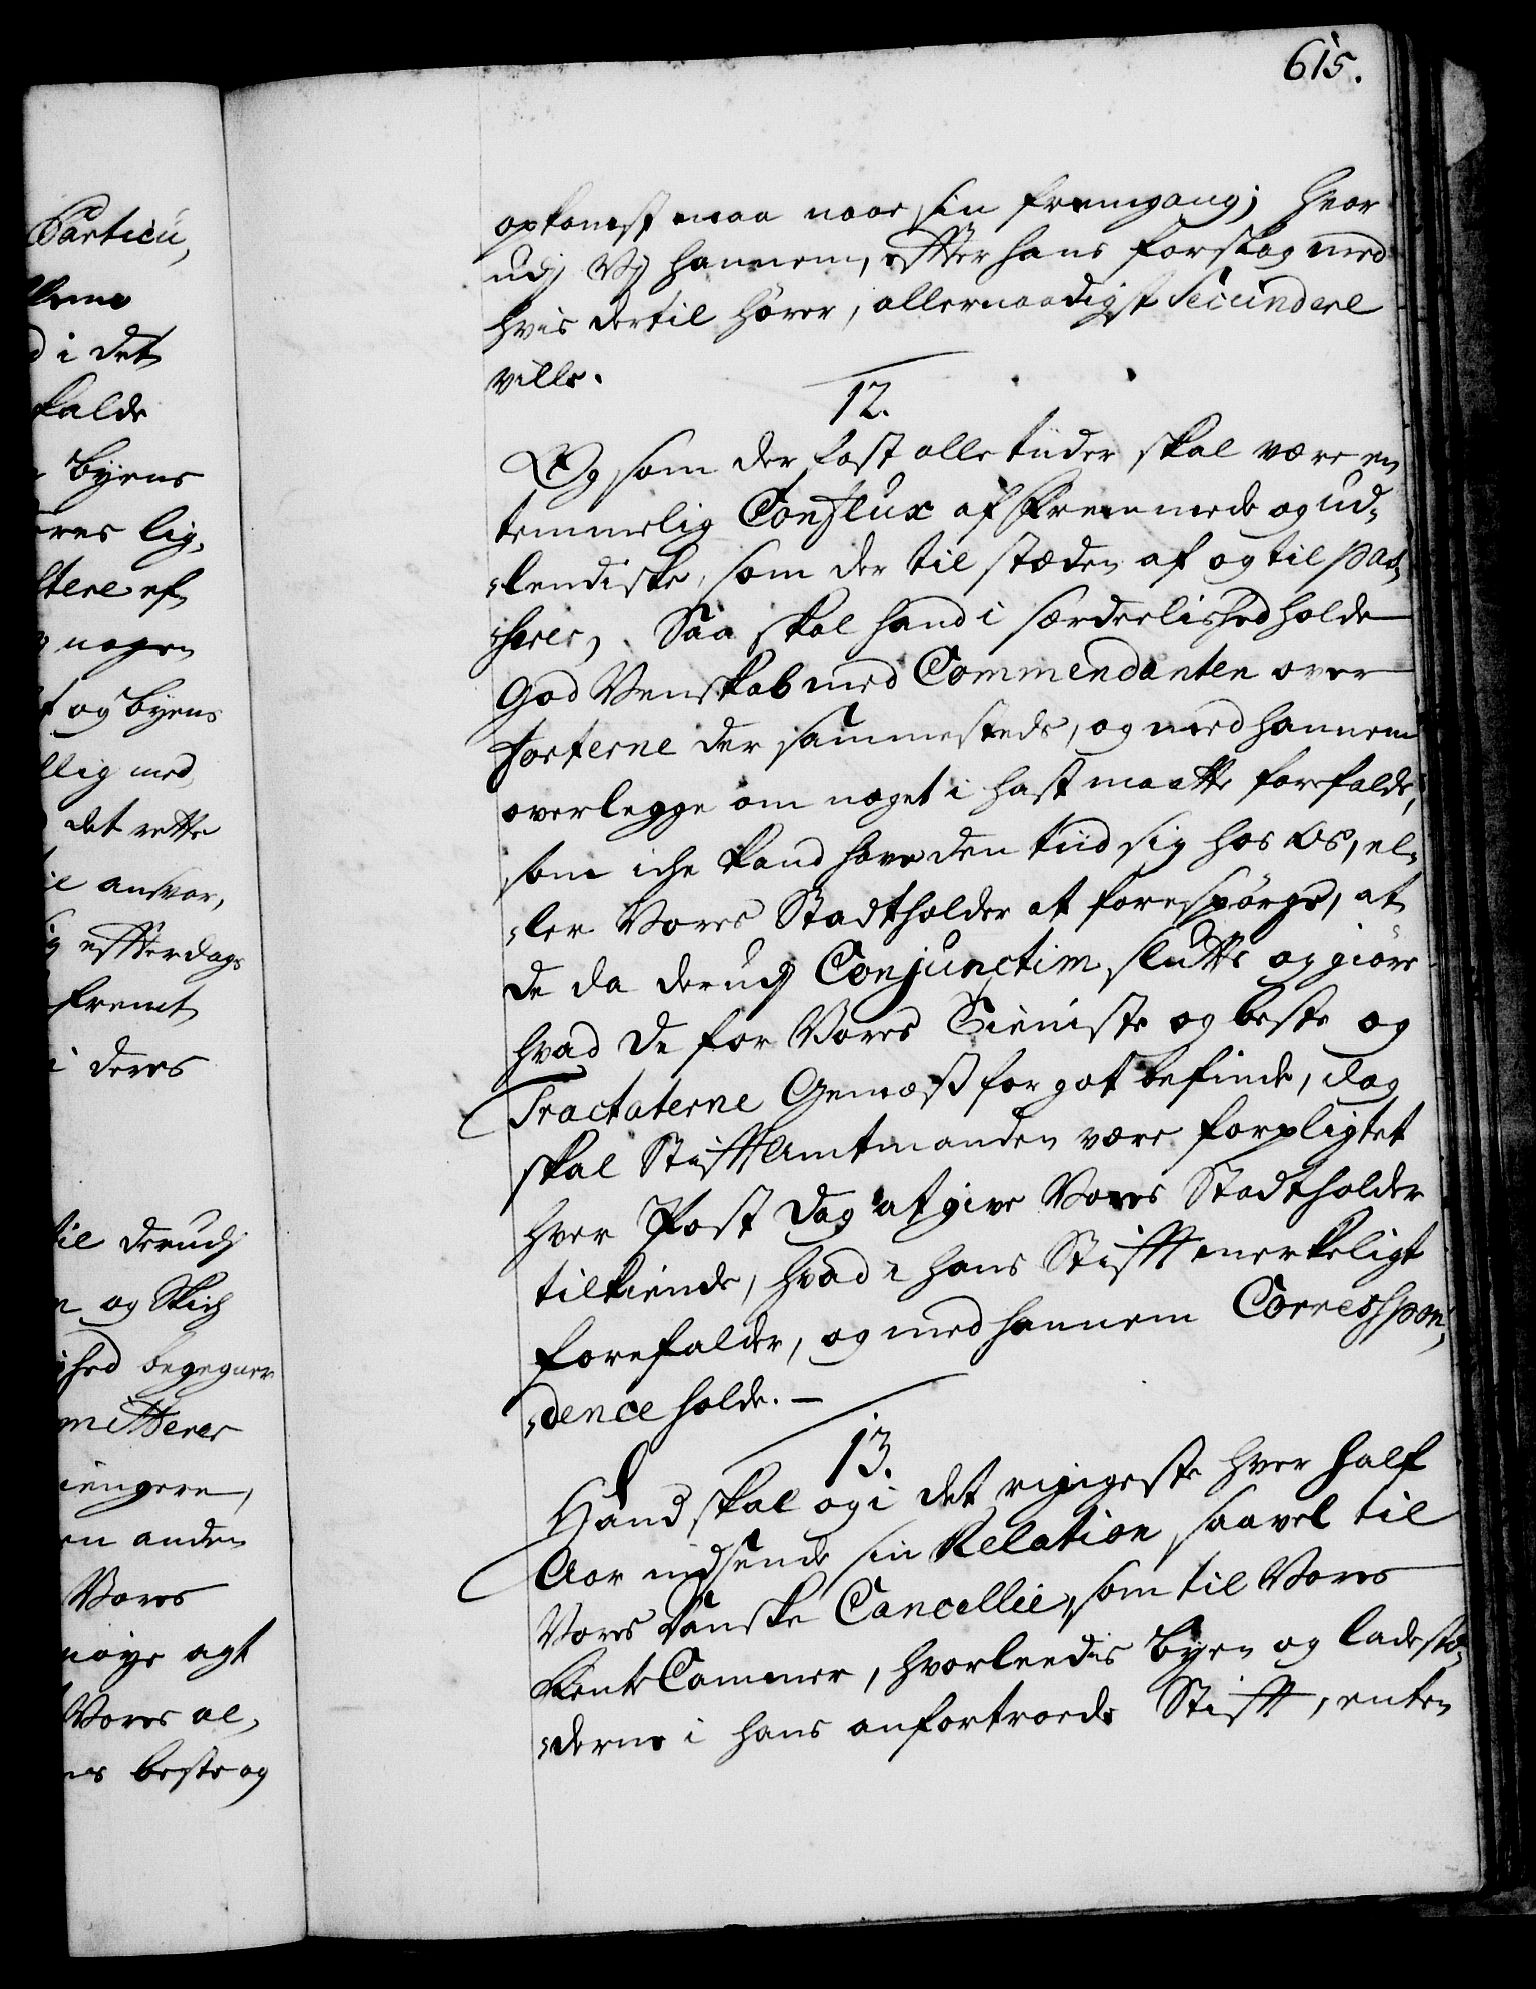 615.
opkomst maa naae sin fremgang; hvor
udj Vj hannem, effter hans forslag med
hvis dertil hører, allernaadigst Secundere
ville.
12.
Og som der fast alle tiider skal være en
temmelig Conflux af Fremmede og ud-
lendiske, som der til stæden af og til pas-
serer, Saa skal hand i særdeelished holde
god Venskab med Commendanten over
forterne der sammesteds, og med hannem
overlegge om noget i hast maatte forefalde,
som iche kand have den tiid sig hos os, el-
ler Vores Stadtholder at forespørge, at
de da derudj Conjunctim slutte og giøre
hvad de for Vores Tieniste og beste og
Tractaterne Gemæss for got befinde, dog
skal Stifft Amtmanden være forpligtet
hver Post dag at give Vores Stadtholder
tilkiende, hvad i hans Stifft merkeligt
forefalder, og med hannem Correspon-
dence holde.
13.
Hand skal og i det ringeste hver half
Aar indsende sin Relation, saavel til
Vores Danske Cancellie, som til Vores
Rente Cammer, hvorleedis Byen og ladestæ-
derne i hans anfortroede Stifft, enten
Particu-
d i det
falde
Byens
res lig-
stere ef-
nogen
og byens
llig med
det rette
ansvar,
effterdags
fremt
i deres
til derudj
og Skich
hed begegner
mitterer
iengere,
en anden
Vores
nøye agt
Vores al-
beste og